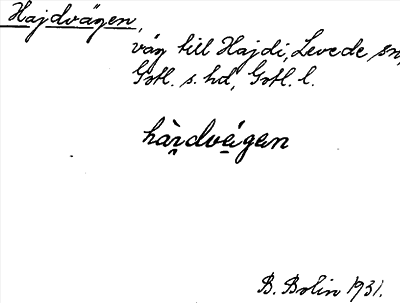 Hajdvägen,
väg till Hajdi, Levede sn,
Gotl. s. hd, Gotl. l.
hàr̤dvä́gen
B. Bolin 1931.